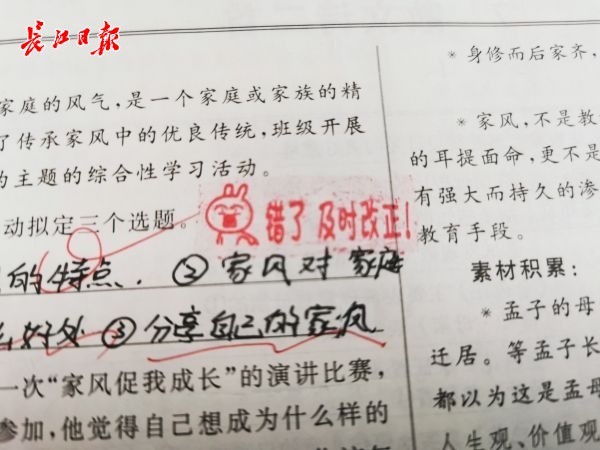 长江日报
家庭的风气,是一个家庭或家族的精
了传承家风中的优良传统,班级开展
为主题的综合性学习活动。
动拟定三个选题。
错了 及时改正!
的特点. ②家风对家庭
好处 ③分享自己的家风
一次“家风促我成长”的演讲比赛,
参加,他觉得自己想成为什么样的
* 身修而后家齐,
* 家风,不是教
的耳提面命,更不是
有强大而持久的渗
教育手段。
素材积累:
* 孟子的母
迁居。等孟子长
都以为这是孟母
人生观、价值观